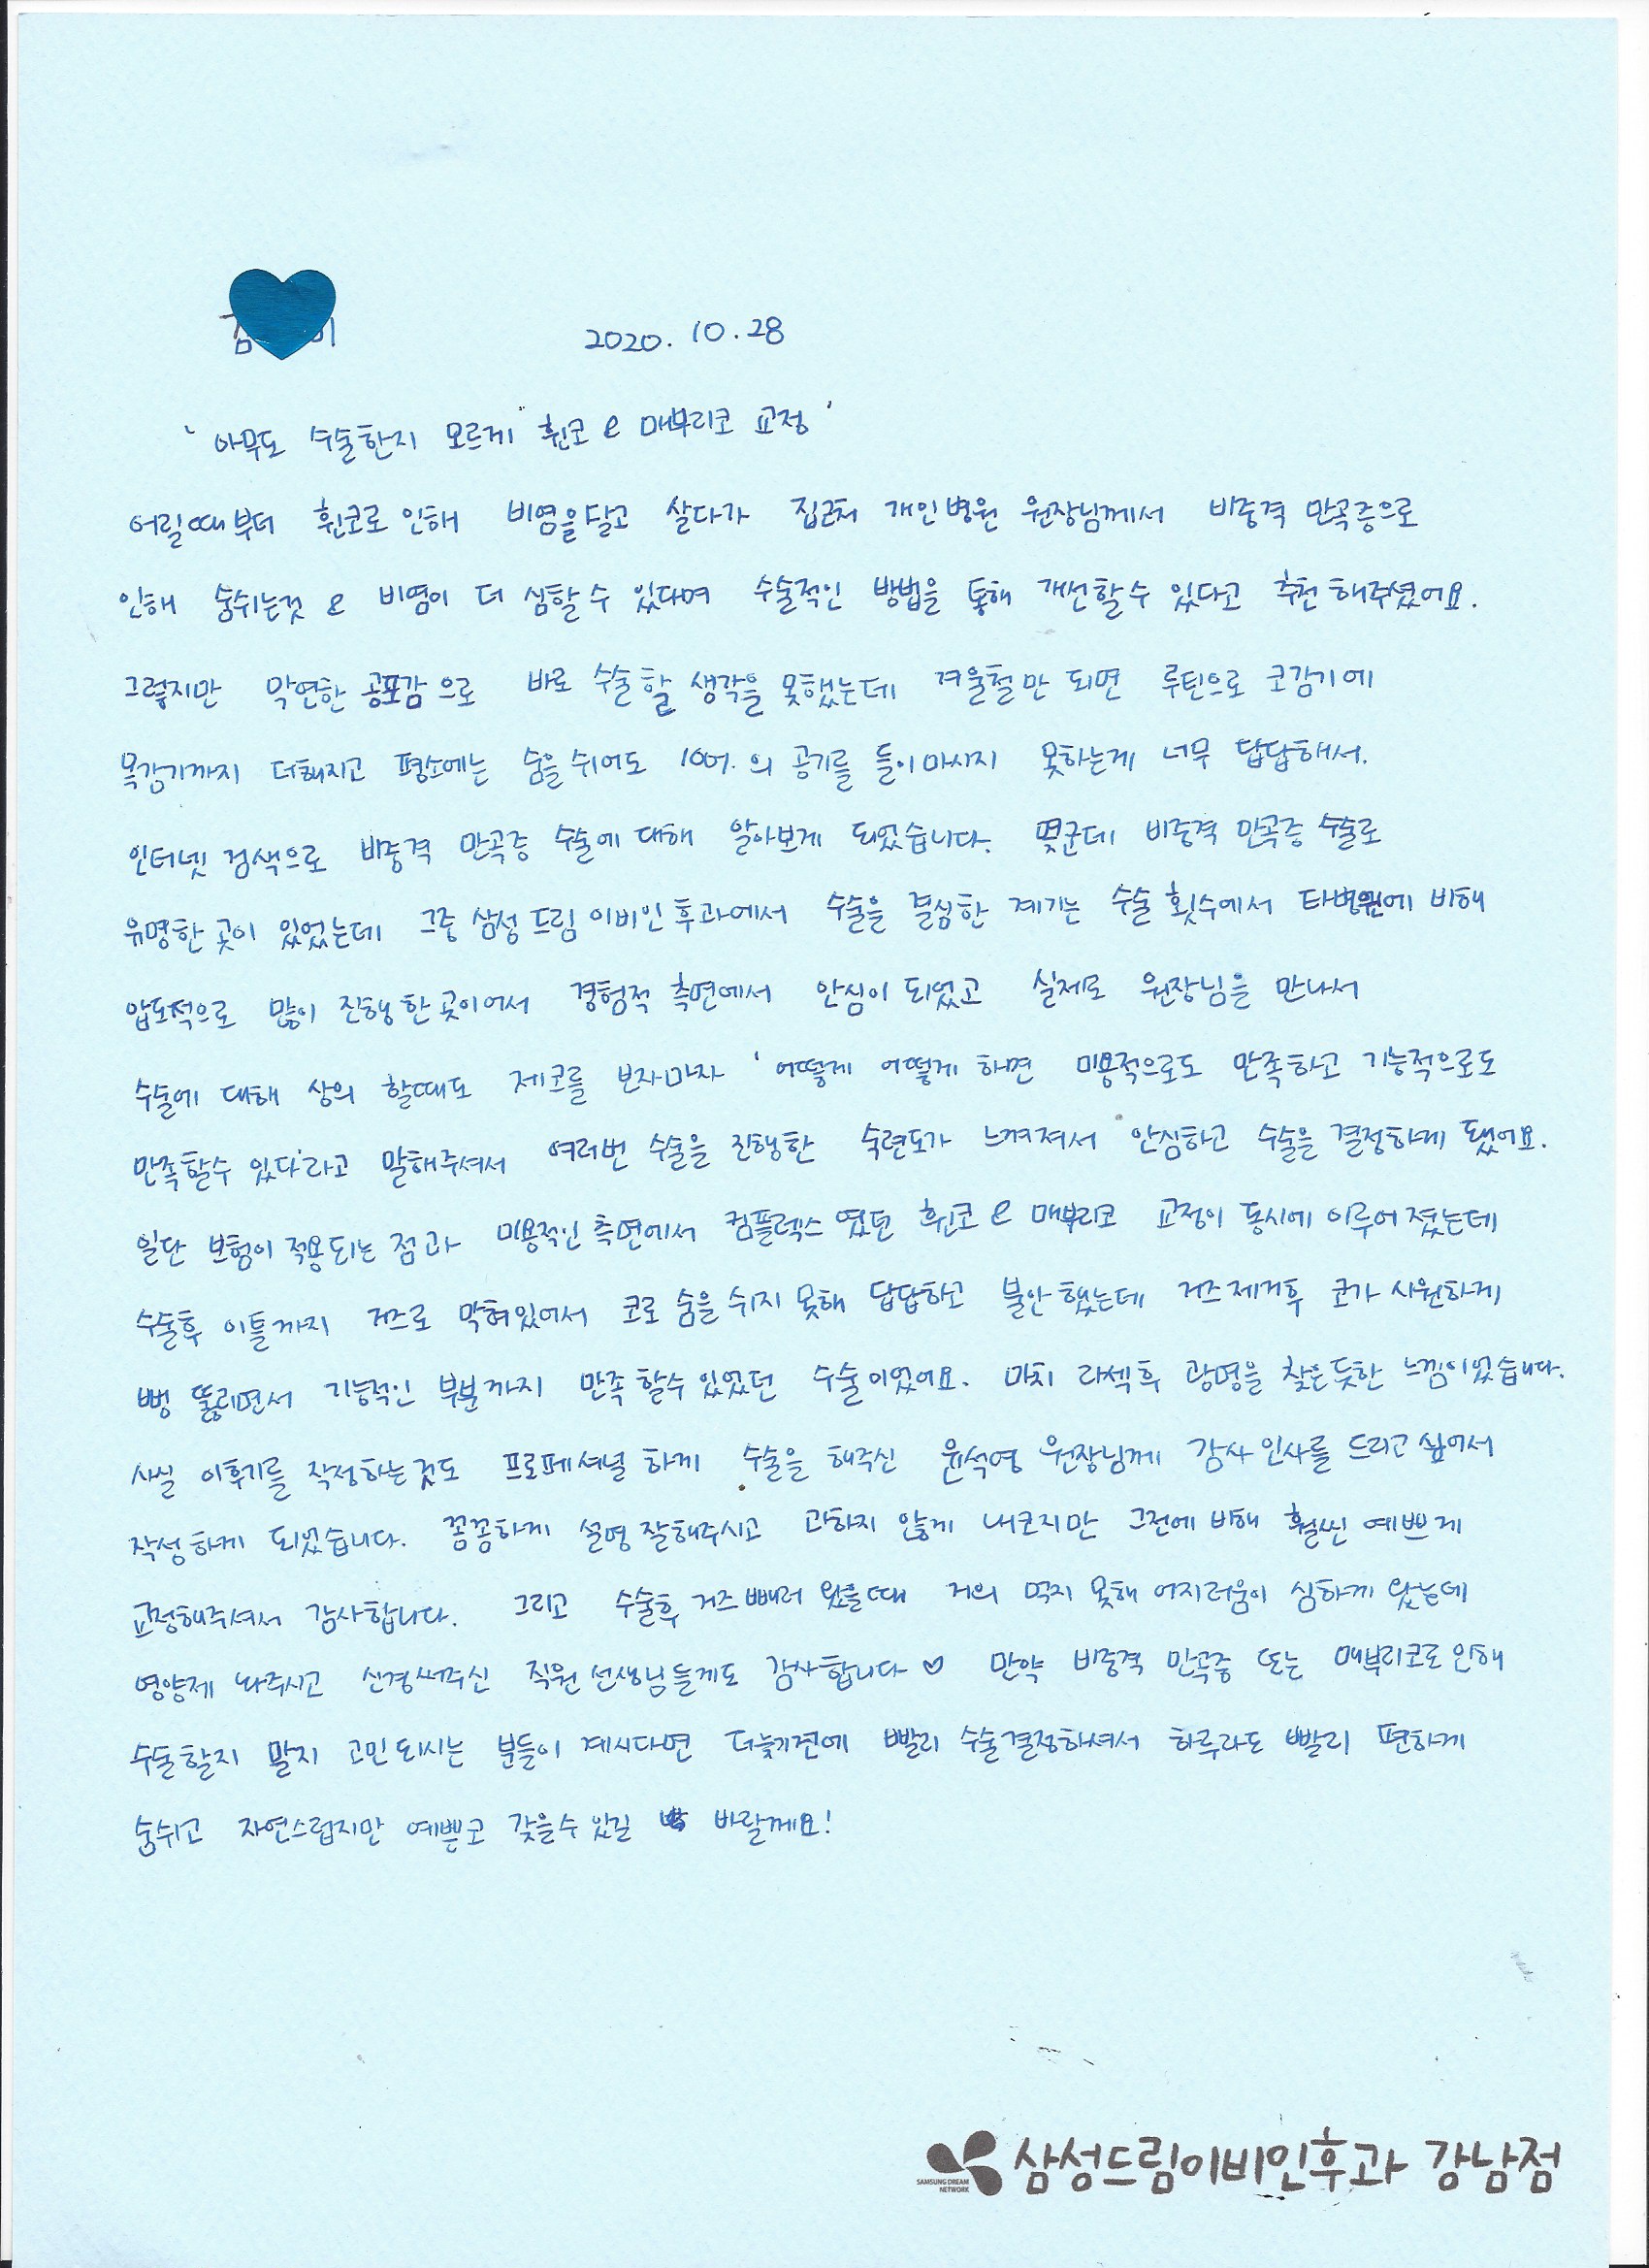 2020. 10. 28
'아무도 수술한지 모르게 휜코 & 매부리코 교정'
어릴때부터 휜코로 인해 비염을달고 살다가 집근처 개인병원 원장님께서 비중격 만곡증으로
인해 숨쉬는것 & 비염이 더 심할수 있다며 수술적인 방법을 통해 개선할수 있다고 추천해주셨어요.
그렇지만 막연한 공포감으로 바로 수술할 생각을 못했는데 겨울철만 되면 루틴으로 코감기에
목감기까지 더해지고 평소에는 숨을쉬어도 100%의 공기를 들이마시지 못하는게 너무 답답해서.
인터넷 검색으로 비중격 만곡증 수술에 대해 알아보게 되었습니다. 몇군데 비중격 만곡증 수술로
유명한 곳이 있었는데 그중 삼성드림이비인후과에서 수술을 결심한 계기는 수술 횟수에서 타병원에 비해
압도적으로 많이 진행한곳이어서 경험적 측면에서 안심이 되었고 실제로 원장님을 만나서
수술에 대해 상의 할때도 제코를 보자마자 '어떻게 어떻게 하면 미용적으로도 만족하고 기능적으로도
만족할수 있다'라고 말해주셔서 여러번 수술을 진행한 숙련도가 느껴져서 안심하고 수술을 결정하게 됐어요.
일단 보험이 적용되는 점과 미용적인 측면에서 컴플렉스였던 휜코 & 매부리코 교정이 동시에 이루어졌는데
수술후 이틀까지 거즈로 막혀있어서 코로 숨을 쉬지 못해 답답하고 불안했는데 거즈제거후 코가 시원하게
뻥 뚫리면서 기능적인 부분까지 만족 할수있었던 수술이었어요. 마치 라섹후 광명을 찾은듯한 느낌이었습니다.
사실 이후기를 작정하는것도 프로페셔널 하게 수술을 해주신 윤석영 원장님께 감사인사를 드리고싶어서
작성하게 되었습니다. 꼼꼼하게 설명 잘해주시고 과하지 않게 내코지만 그전에 비해 훨씬 예쁘게
교정해주셔서 감사합니다. 그리고 수술후 거즈빼러 왔을때 거의 먹지 못해 어지러움이 심하게 왔는데
영양제 놔주시고 신경써주신 직원 선생님들께도 감사합니다♡ 만약 비중격 만곡증 또는 매부리코로 인해
수술할지 말지 고민되시는 분들이 계시다면 더늦기전에 빨리 수술결정하셔서 하루라도 빨리 편하게
숨쉬고 자연스럽지만 예쁜코 갖을수 있길 바랄께요!
SAMSUNG DREAM NETWORK 삼성드림이비인후과 강남점